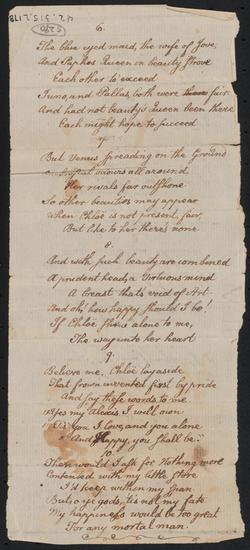 6.
The blue eyed maid, the wife of Jove,
And Paphos Queen in beauty strove
Each other to exceed
Juno, and Pallas, both were fair
And had not beauty's Queen been there
Each might hope to succeed
7
But Venus spreading on the Ground
all around
Her rivals far outshone
So other beauties may appear
When Chloe is not present, fair,
But like to her there's none
8.
And with such beauty are combined
A prudent head, a Virtuous mind
A breast that's void of Art.
And oh! how happy should I be!
If Chloe shows alone to me,
The way unto her heart
9.
Believe me, Chloe lay aside
That frown invented first by pride
And say these words to me
Yes my Alexis I will own
You I love, and you alone
And Happy, you shall be.
10.
Then would I ask for Nothing more
Contented with my little store
I'd keep within my span
But, o ye gods, it's not my fate
My happiness would be too great
For any mortal man.